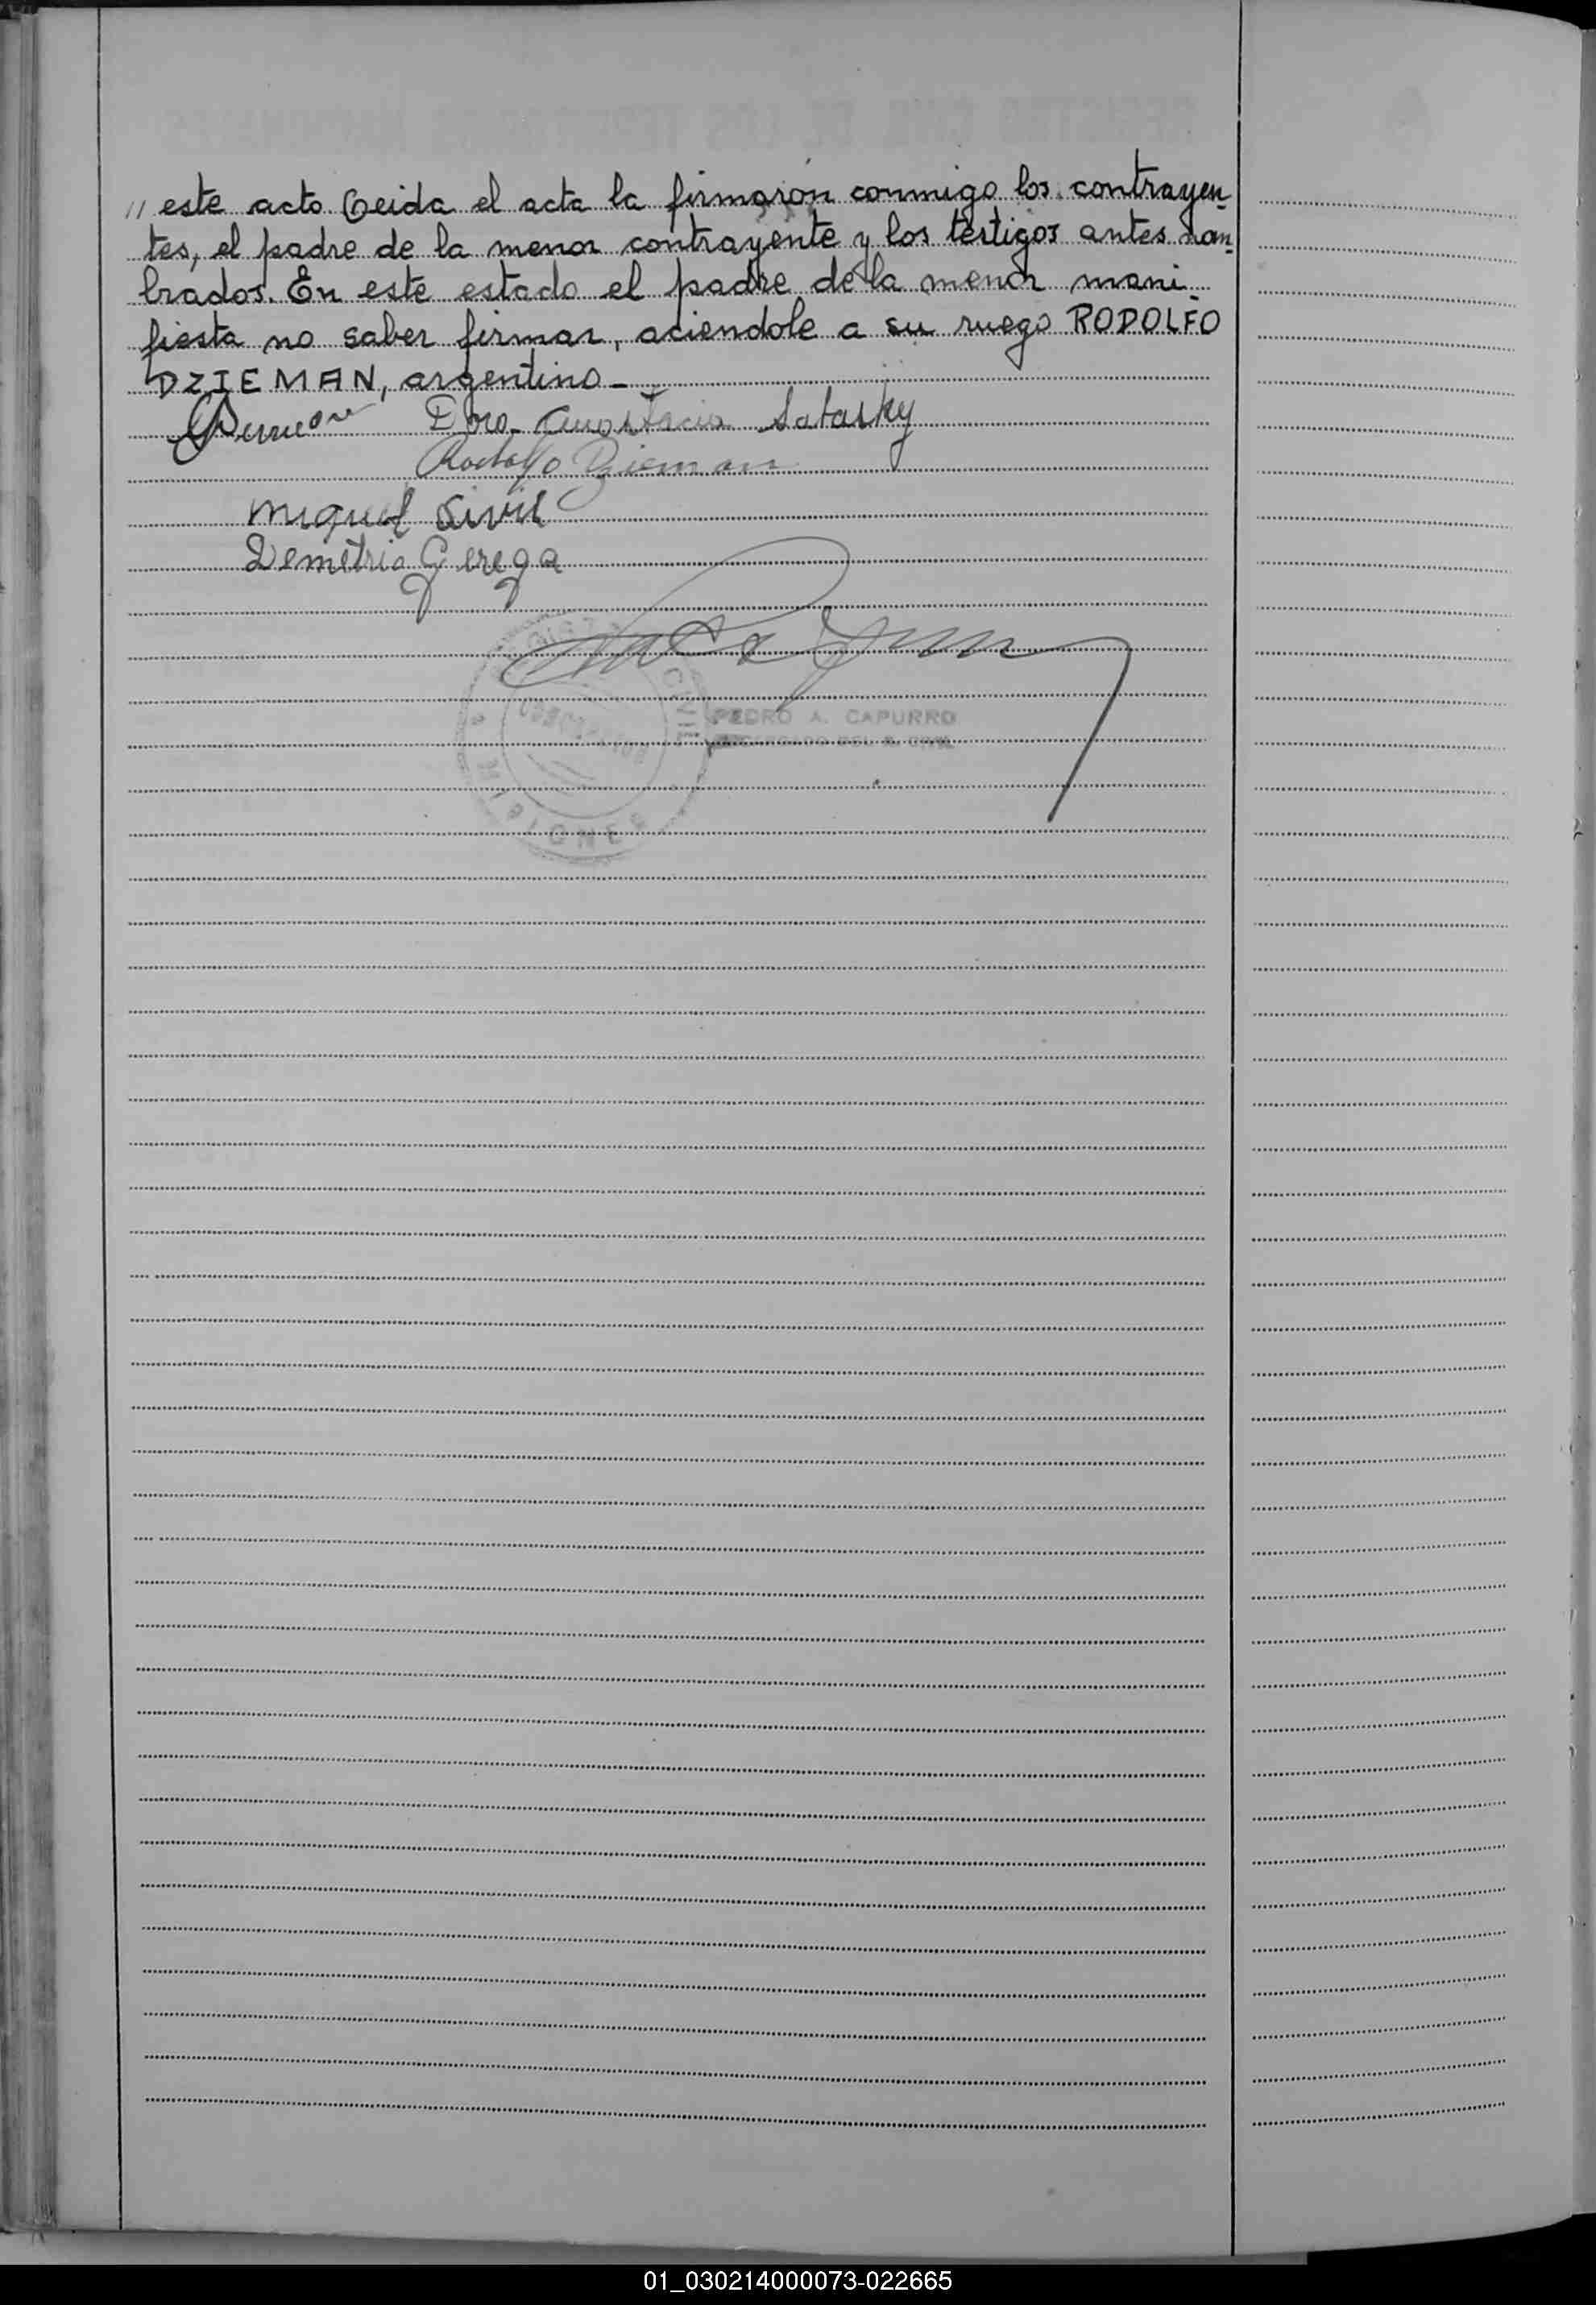 // este acto. Leida el acta la firmaron conmigo los contrayen-
tes, el padre de la menor contrayente y los testigos antes nom-
brados. En este estado el padre de la menor mani-
fiesta no saber firmar, aciendole a su ruego RODOLFO
DZIEMAN, argentino.-
Anastacia Satasky
Rodolfo Dzieman
Miguel Sivil
Demetrio Gerega
CIVIL
PEDRO A. CAPURRO
ENCARGADO DEL R. CIVIL
MISIONES
01_030214000073-022665